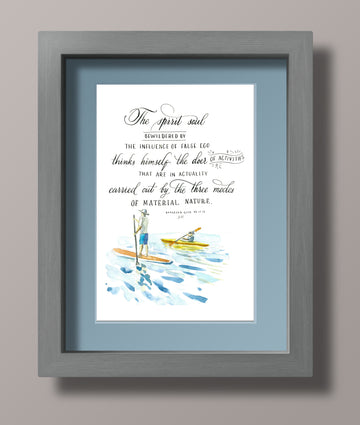 The spirit soul
BEWILDERED BY
THE INFLUENCE OF FALSE EGO
thinks himself the doer OF ACTIVITIES
THAT ARE IN ACTUALITY
carried out by the three modes
OF MATERIAL NATURE.